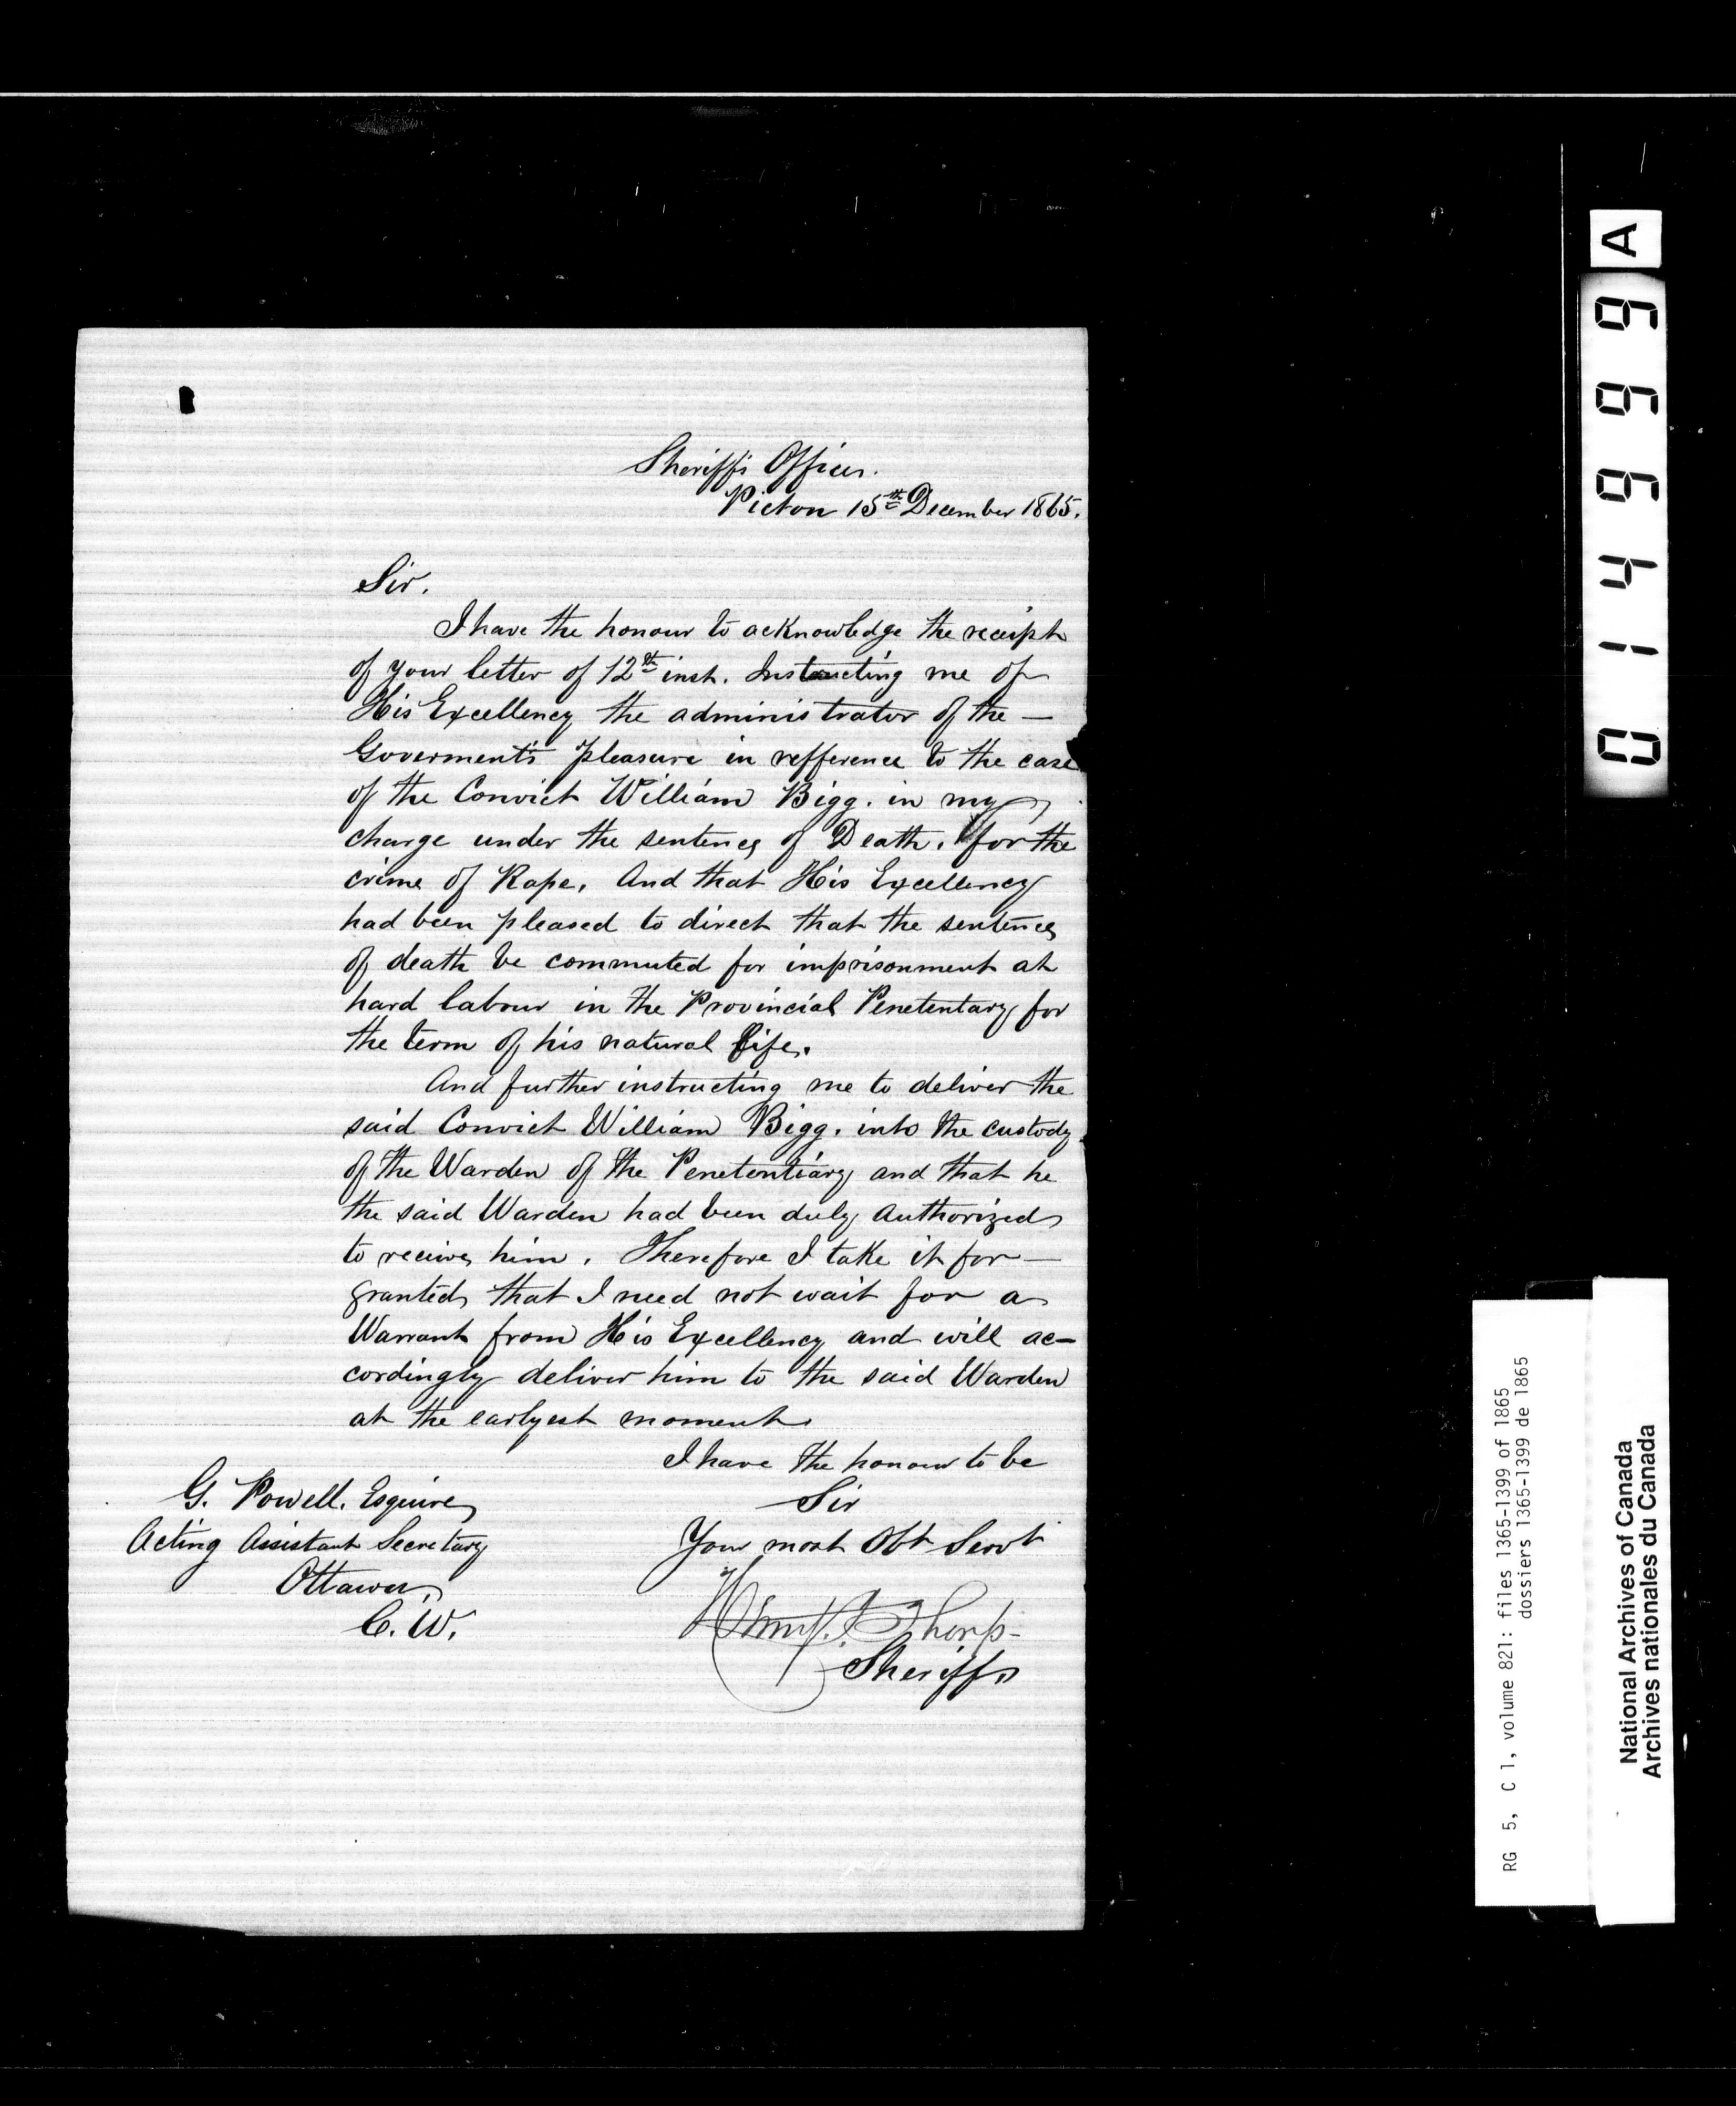 Sheriffs Office.
Picton 15th December 1865.
Sir.
I have the honour to acknowledge the receipt
of your letter of 12th inst. Instructing me of
His Excellency the administrator of the —
Goverment's pleasure in refference to the case
of the Convict William Bigg. in my
charge under the sentence of Death. for the
crime of Rape. And that His Excellency
had been pleased to direct that the sentence
of death be commuted for imprisonment at
hard labour in the Provincial Penetentary for
the term of his natural life.
And further instructing me to deliver the
said Convict William Bigg. into the custody
of the Warden of the Penetentiary and that he
the said Warden had been duly authorized
to receive him. Therefore I take it for —
granted that I need not wait for a
Warrant from His Excellency and will ac-
cordingly deliver him to the said Warden
at the earlyest moment.
I have the honour to be
Sir
Your most Obt Servt
Thorp
Sheriff
G. Powell. Esquire
Acting Assistant Secretary
Ottawa
C. W.
014999 A
RG 5, C 1, volume 821: files 1365-1399 of 1865
dossiers 1365-1399 de 1865
National Archives of Canada
Archives nationales du Canada